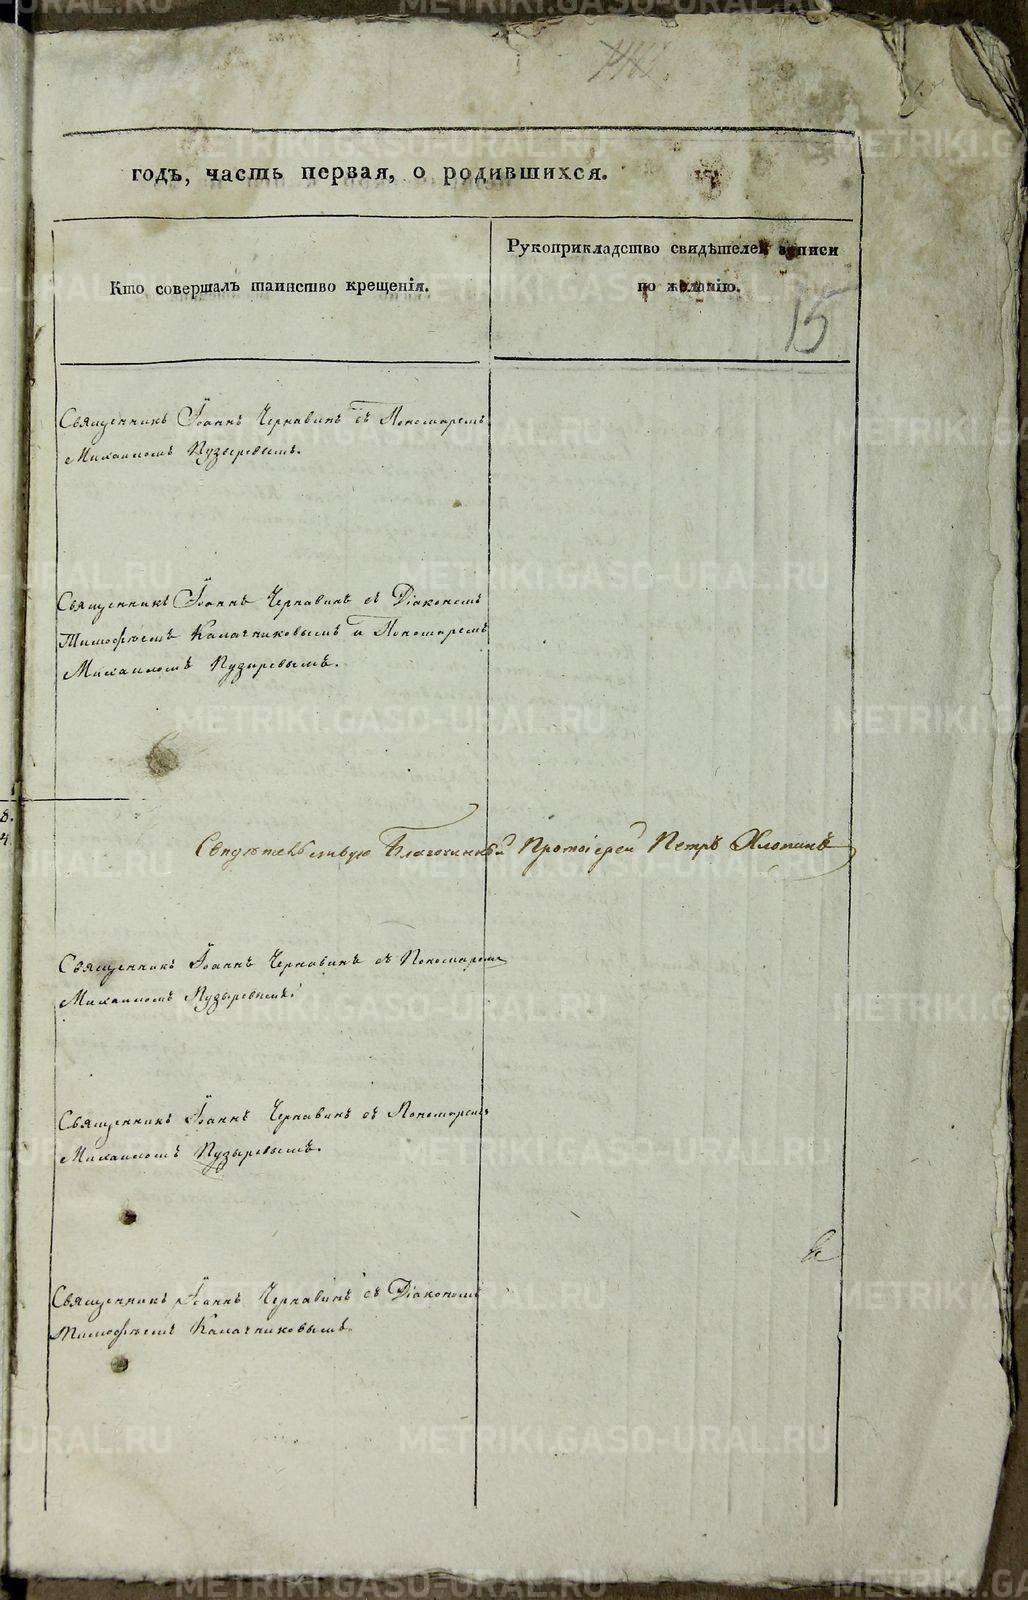 годъ, часть первая, о родившихся.
Кто совершалъ таинство крещенія.
Рукоприкладство свидѣтелей записи
по желанію.
15
Священникъ Іоаннъ Чернавинъ съ Пономаремъ
Михаиломъ Пузыревымъ.
Священникъ Іоаннъ Чернавинъ съ Діакономъ
Тимофѣемъ Калачниковымъ и Пономаремъ
Михаиломъ Пузыревымъ.
Свидѣтельствую Благочинный Протоіерей Петръ Хлопинъ
Священникъ Іоаннъ Чернавинъ съ Пономаремъ
Михаиломъ Пузыревымъ.
Священникъ Іоаннъ Чернавинъ съ Пономаремъ
Михаиломъ Пузыревымъ.
Священникъ Іоаннъ Чернавинъ съ Діакономъ
Тимофѣемъ Калачниковымъ.
METRIKI.GASO-URAL.RU